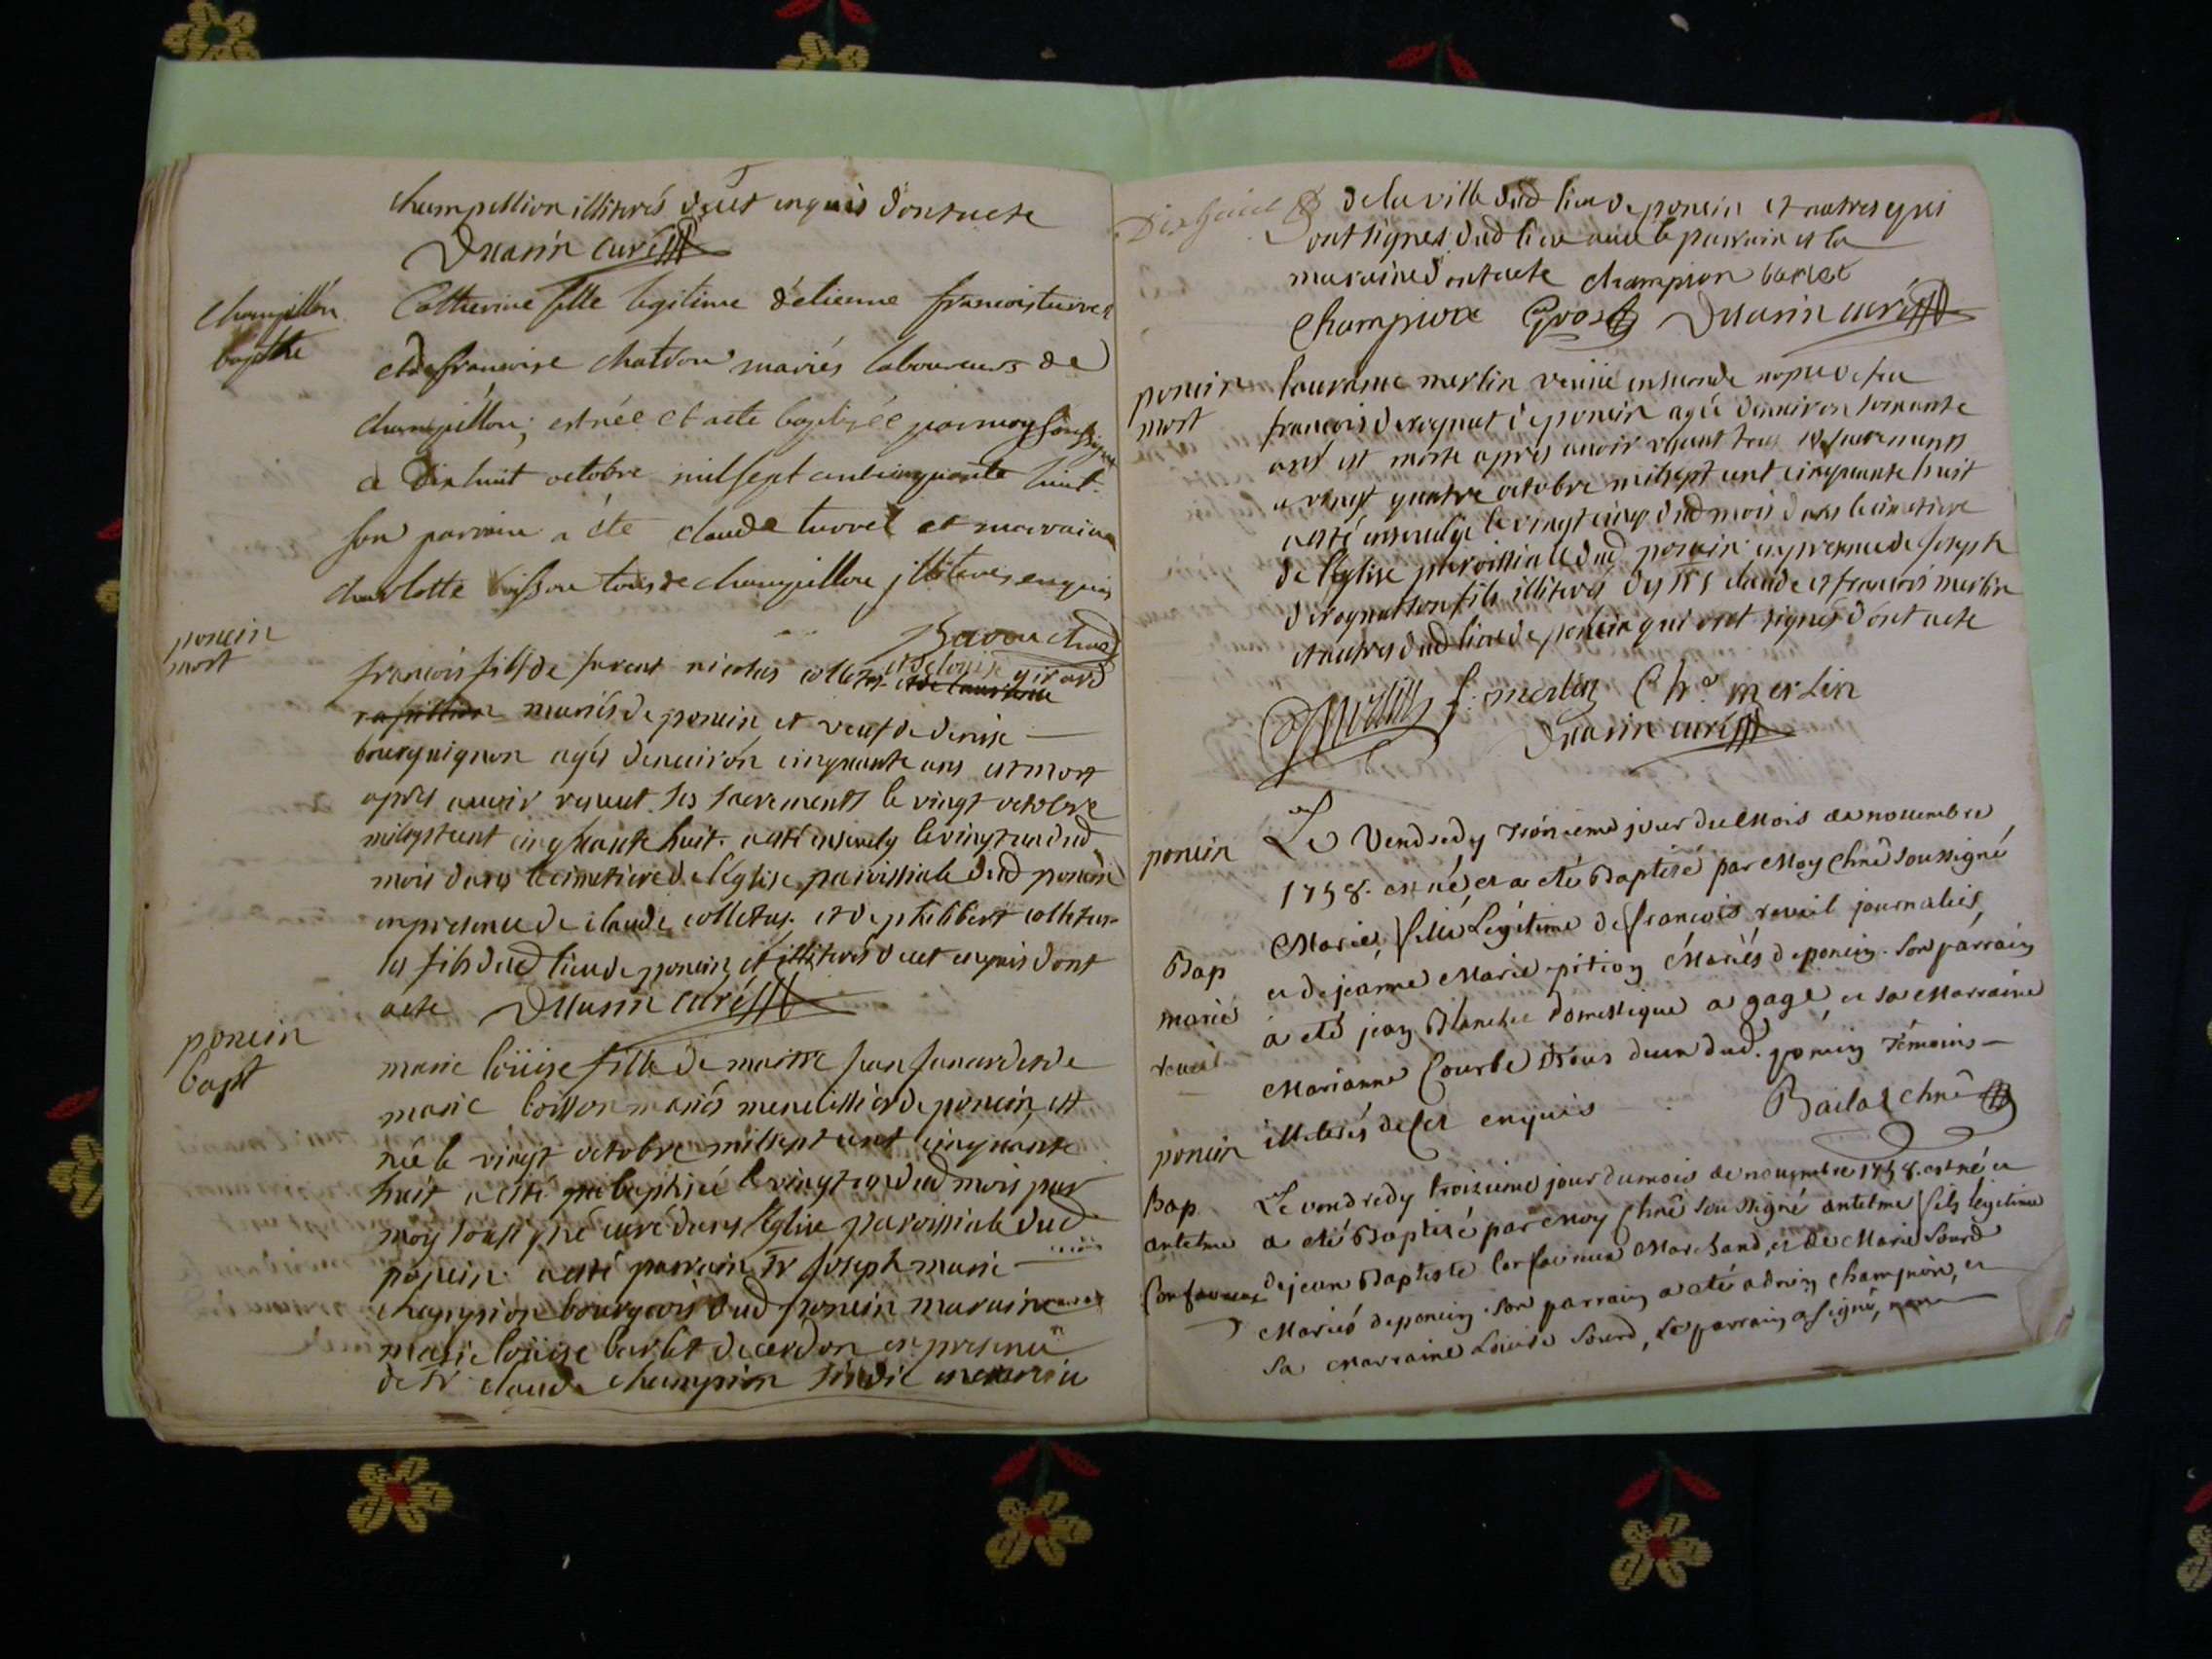 champellion illiterés de cet enquis dont acte
Duarin curé
champillon
baptême
Catherine fille legitime d'etienne francois turrel
et de francoise chatdon mariés laboureurs de
champillon; est née et a ete baptisée par moy soussigné
a dix huit octobre mil sept cent cinquante huit
son parrain a été claude turrel et marraine
charlotte buisson tous de champillon jlliteres enquis
poncin
mort
francois fils de furent nicolas colletas et de louise girard
et de laurence
mariés de poncin et veuf de denise
bourguignon agés d'enuirón cinquante ans est mort
apres auoir reçeut ses sacrements le vingt octobre
mil sept cent cinquante huit. a esté enseuely le vingt un dud
mois dans le cimetiere de l'eglise paroissiale dud poncin
en presence de claude colletas. et de philibert colletas
ses fils dud lieu de poncin et illiterés de cet enquis dont
acte Duarin curé
poncin
bapt
marie loüise fille de maitre jean et de
marie boisson mariés menuissier de poncin, est
née le vingt octobre mil sept cent cinquante
huit a esté baptisée le vingt un dud mois par
moy soussigné curé dans l'eglise paroissiale dud
poncin a esté parrain Sr joseph marie
champion bourgeois dud poncin maraine
marie loüise barlet de cerdon en presence
de Sr claude champion sindic
de la ville dud lieu de poncin et autres qui
ont signes dud lieu auec le parrain et la
maraine dont acte champion barlet
champion Gros Duarin curé
poncin
mort
laurence merlin veuue en seconde nopce de feu
francois derognat de poncin agée d'enuiron soixante
ans est morte après auoir reçeut tous ses sacrements
a vingt quatre octobre mil sept cent cinquante huit
a esté enseuelye le vingt cinq dud mois dans le cimetiere
de l'eglise paroissiale dud poncin en presence de joseph
derognat son fils illiterés des srs claude et francois merlin
et autres dud lieu de poncin qui ont signés dont acte
f. merlin Chs merlin
Duarin curé
poncin
Le Vendredy troisieme jour du Mois de nouembre
1758. est né, et a eté Baptisé par Moy Chnê soussigné
Bap
marie
reveil
Marie, fille Légitime de francois reveil journalier,
et de jeanne Marie pition Mariés de poncin. Son parrain
a eté jean Blanchet domestique a gage et sa Marraine
Marianne Courbe tous deux dud. poncin témoins
illiterés de ces enquis
Bailat chnê
poncin
Bap
antelme
Corfavieux
Le vendredy troizieme jour du mois de nouembre 1758. est né et
a eté Baptisé par Moy Chnê soussigné antelme fils legitime
de jean Baptiste Corfavieux Marchand, et de Marie Sourd
Mariés de poncin. Son parrain a eté adrien champion, et
sa Marraine Louise Sourd, le parrain a signé,